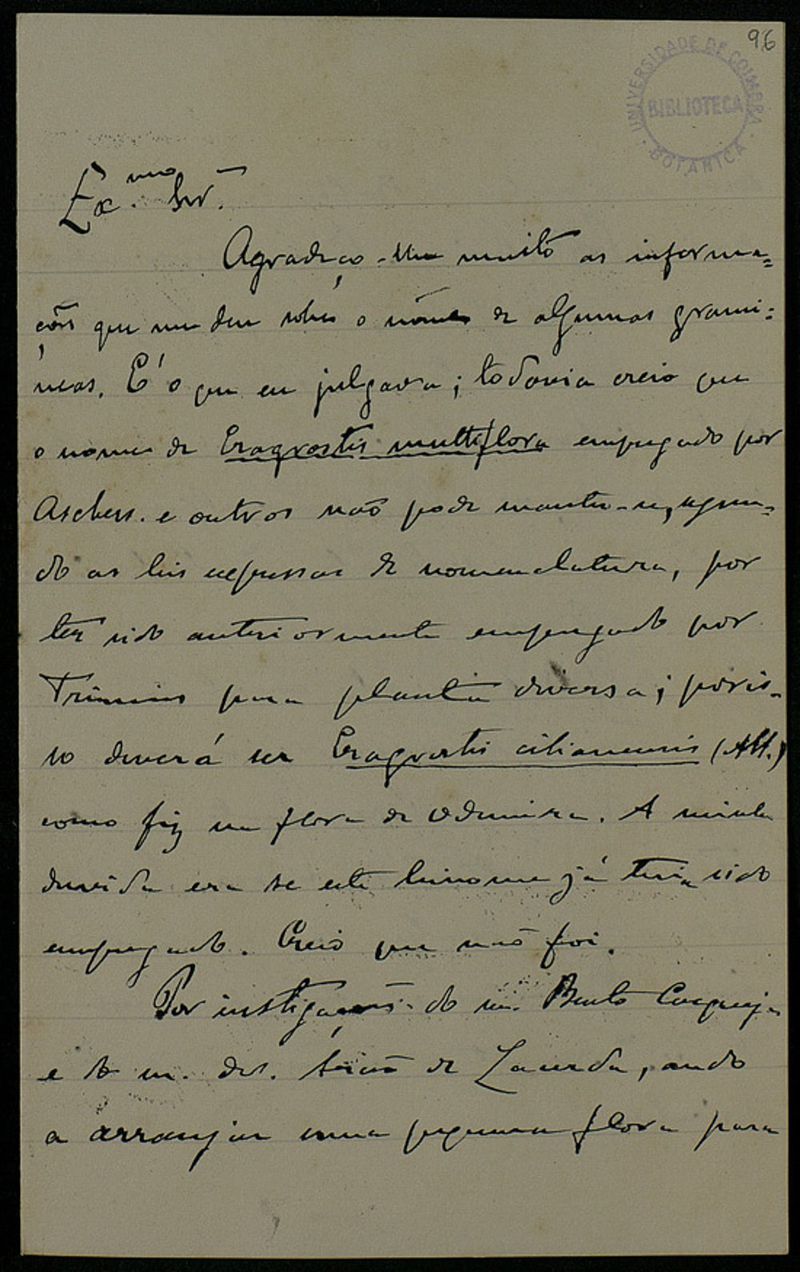 96
UNIVERSIDADE DE COIMBRA
BIBLIOTECA
BOTANICA
Ex.mo Snr.
Agradeço-lhe muito as informa=
ções que me deu sobre o nome de algumas grami=
neas. E' o que eu julgava; todavia creio que
o nome de Eragrostis multiflora empregado por
Aschers. e outros não pode manter-se, segun-
do as leis expressas de nomenclatura, por
ter sido anteriormente empregado por
Trinius para planta diversa; poris-
so deverá ser Eragrostis cilianensis (All.)
como fiz na flora de Odemira. A minha
duvida era se este binome já teria sido
empregado. Creio que não foi.
Por instigações do sr. Bento Carqueja
e do sr. de Lacerda, ando
a arranjar uma pequena flora para